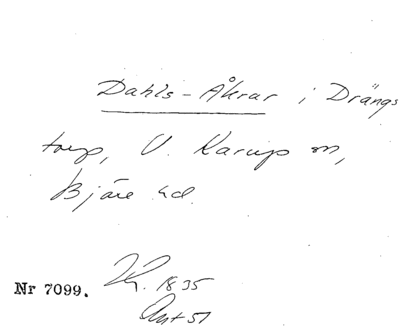 Dahls-Åkrar i Drängs
torp, V. Karup sn,
Bjäre hd.
Nr 7099. 1835
Akt 51